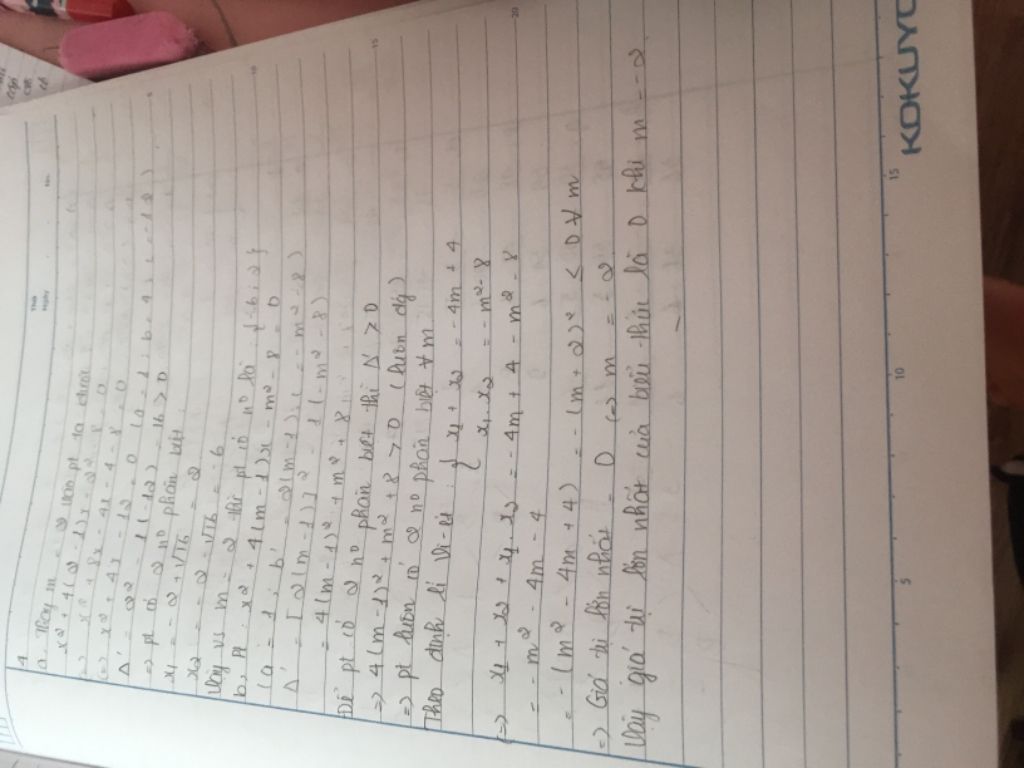 4
a. Thay m = 2 vào pt ta được
x² + 4(2-1)x - 2² - 8 = 0
(=) x² + 8x - 4x - 4 - 8 = 0
(=) x² + 4x - 12 = 0 (a = 1; b = 4; c = -12)
Δ' = 2² - 1(-12) = 16 > 0
=> pt có 2 nº phân biệt
x1 = -2 + √16 = 2
x2 = -2 - √16 = -6
Vậy vs m = 2 thì pt có nº là {-6; 2}
b, pt: x² + 4(m-1)x - m² - 8 = 0
(a = 1; b' = 2(m-1); c = -m² - 8)
Δ' = [2(m-1)]² - 1(-m² - 8)
= 4(m-1)² + m² + 8
Để pt có 2 nº phân biệt thì Δ' > 0
=> 4(m-1)² + m² + 8 > 0 (luôn đg)
=> pt luôn có 2 nº phân biệt ∀m
Theo định lí Vi-ét: { x1 + x2 = -4m + 4
x1.x2 = -m² - 8
(=> x1 + x2 + x1.x2 = -4m + 4 - m² - 8
= -m² - 4m - 4
= -(m² - 4m + 4) = -(m + 2)² ≤ 0 ∀m
=> Giá trị lớn nhất = 0 (=) m = -2
Vậy giá trị lớn nhất của biểu thức là 0 khi m = -2
KOKUYO